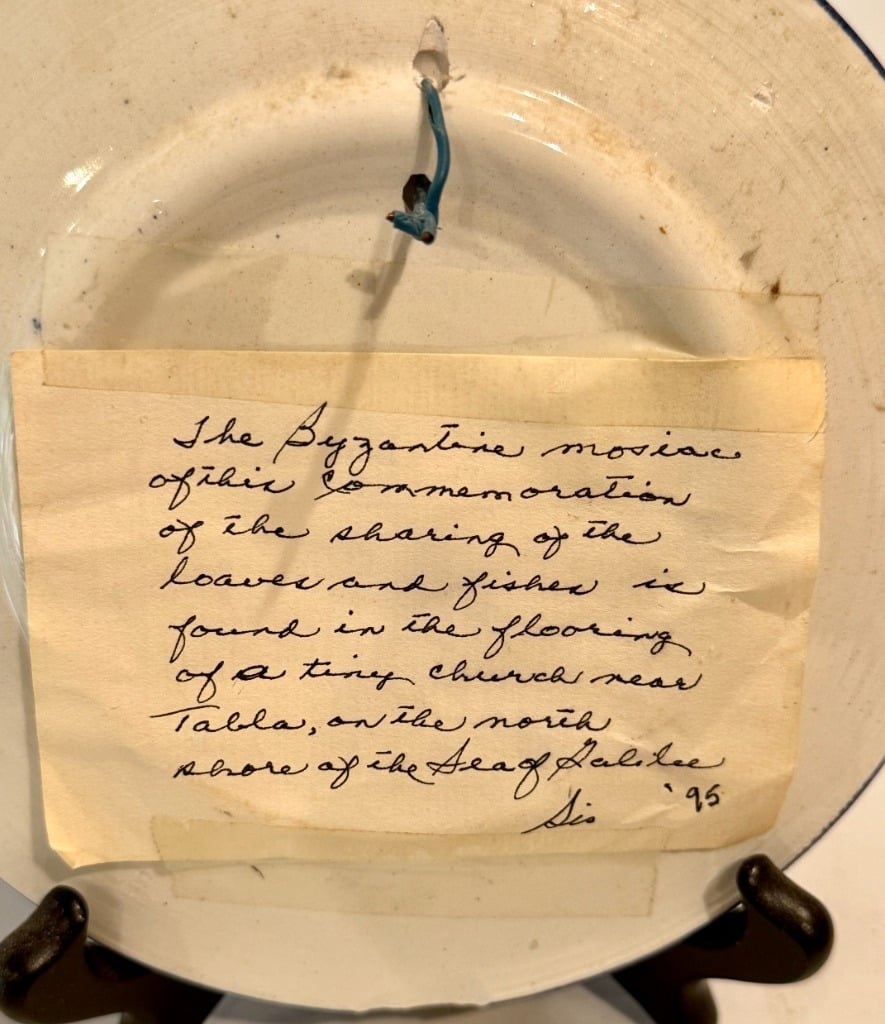 The Byzantine mosiac
of this commemoration
of the sharing of the
loaves and fishes is
found in the flooring
of a tiny church near
Tabla, on the north
shore of the Sea of Galilee
Sis '95